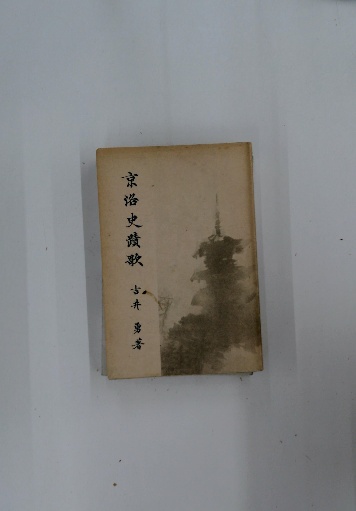 京洛史蹟歌
吉井勇著